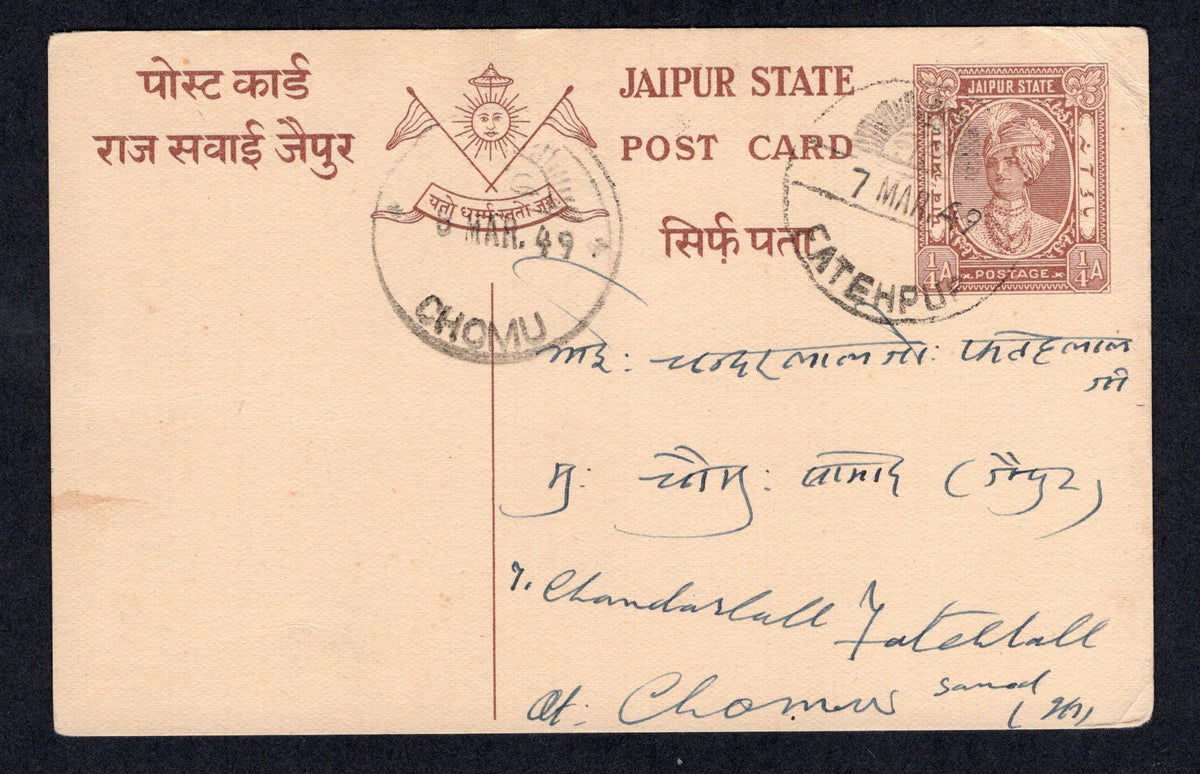 पोस्ट कार्ड
राज सवाई जैपुर
यतो धर्म स्ततो जयः
JAIPUR STATE
POST CARD
सिर्फ़ पता
JAIPUR STATE
POSTAGE
1/4 A
1/4 A
7 MAR. 49
FATEHPUR
9 MAR. 49
CHOMU
भाई: चन्दरलालजी: फतेहलाल
जी
मु: चौमु: सामोद (जैपुर)
Chandarlall Fatehlall
At: Chomu Samod